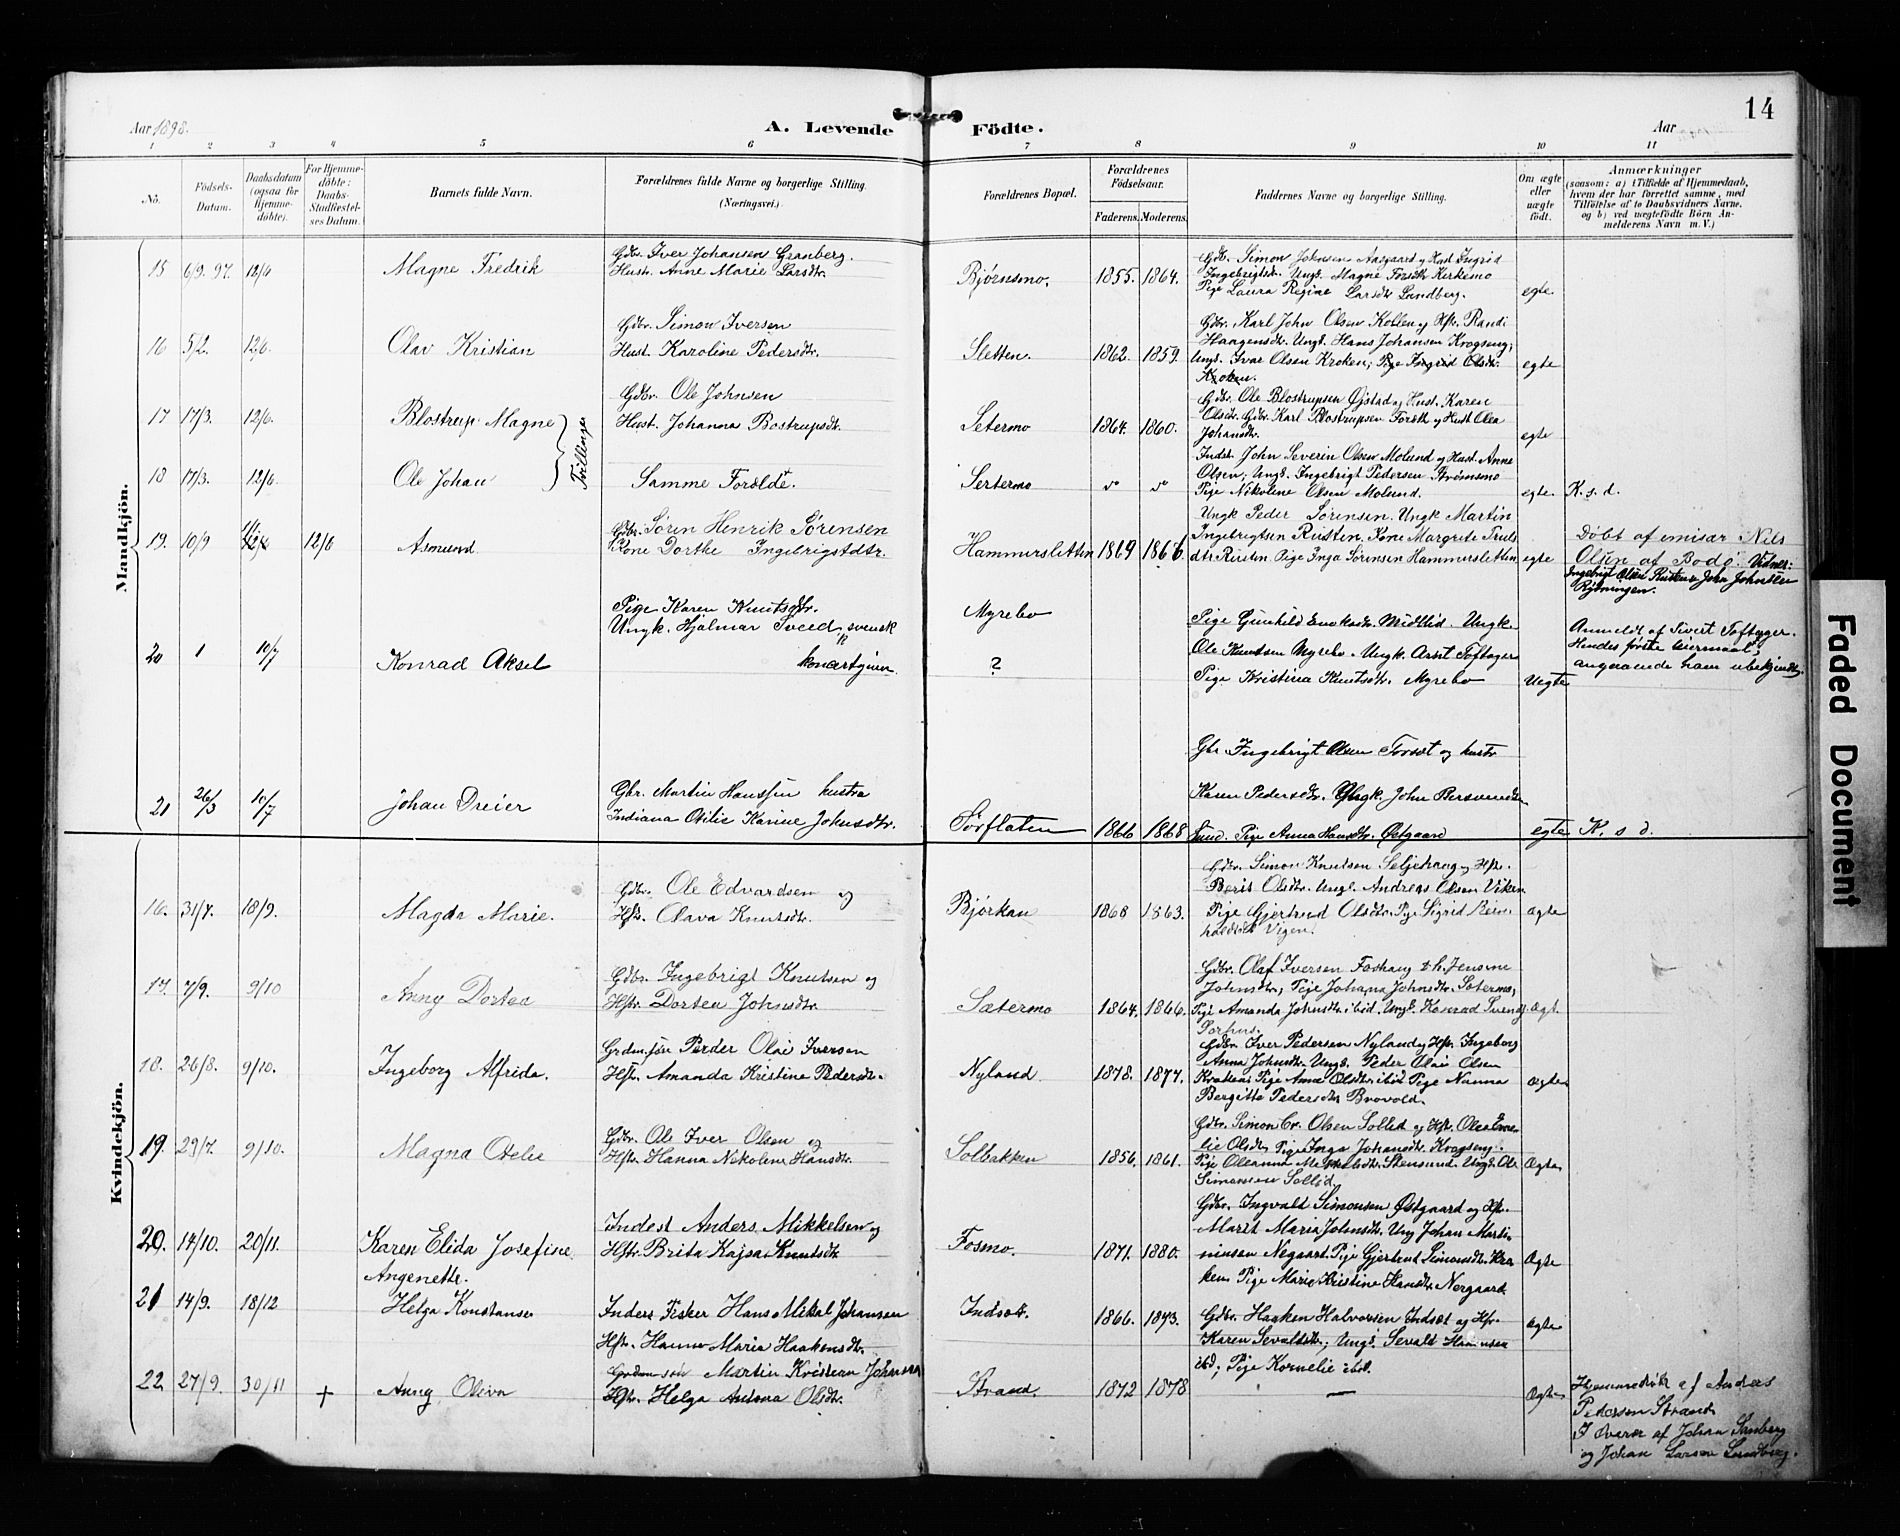 14
Aar 1898.
A. Levende Födte.
Aar
1 2 3 4 5 6 7 8 9 10 11
No.
Födsels-Datum.
Daabsdatum (ogsaa for Hjemme-døbte).
For Hjemme-döbte: Daabs-Stadfæstel-ses Datum.
Barnets fulde Navn.
Forældrenes fulde Navne og borgerlige Stilling. (Næringsvei.)
Forældrenes Bopæl.
Forældrenes Födselsaar.
Faderens. Moderens.
Faddernes Navne og borgerlige Stilling.
Om ægte eller uægte födt.
Anmærkninger
(saasom: a) i Tilfælde af Hjemmedaab,
hvem der har forrettet samme, med
Tilföielse af to Daabsvidners Navne.
og b) ved uægtefödte Börn An-
melderens Navn m. V.)
Mandkjön.
15 6/9. 97. 12/6 Magne Fredrik
Gdbr. Iver Johansen Granberg.
Hust. Anne Marie Larsdtr.
Bjørnsmo. 1855. 1864.
Gdb. Simon Johnsen Aasgaard og Hust Ingrid
Ingebrigtsd. Ungk. Magne Forsth Kirkesmo
Pige Laura Regine Larsdtr Lundberg.
egte
16 5/2. 12/6. Olav Kristian
Gdbr. Simon Iversen
Hust. Karoline Pedersdtr.
Sletten. 1862. 1859.
Gdbr. Karl John Olsen Kollen og Hft. Randi
Haagensdtr. Ungk. Hans Johansen Krogseng;
Ungk. Ivar Olsen Kroken; Pige Ingrid Olsdtr.
Kroken.
egte
17 17/3. 12/6. Blostrup Magne
Tvillinger
Gdbr. Ole Johnsen
Hust. Johanna Bostrupsdtr.
Setermo 1864. 1860.
Gdbr. Ole Blostrupsen Øistad og Hust. Karen
Olsdtr. Gdbr. Karl Blostrupsen Forsth og Hust Olea
Johansdtr.
egte
18 17/3. 12/6 Ole Johan
Samme Forælde.
Sertermo
Indst. John Severin Olsen Molund og Hust. Anne
Olsen, Ungk. Ingebrigt Pedersen Strømsmo
Pige Nikoline Olsen Molund.
egte. K. s. d.
19. 10/9 12/6 Asmund
Gdbr. Søren Henrik Sørensen
Kone Dorthe Ingebrigtsdtr.
Hammersletten 1869 1866
Ungk Peder Sørensen. Ungk Martin
Ingebrigtsen Rusten. Kone Margrete Truls
dtr. Rusten. Pige Inga Sørensen Hammersletten
egte
Døbt af emisær Nils
Olsen af Bodø. Vidner:
Ingebrigt Olsen Rusten og John Johnsen
Rydningen.
20 1 10/7 Konrad Aksel
Pige Karen Knutsdtr.
Ungk. Hjalmar Sveed, svensk
Myrebo
?
Pige Gunhild Enoksdtr. Midtlid. Ungk.
Ole Knutsen Myrebo. Ungk. Arnt Toftager
Pige Kristina Knutsdtr. Myrebo
Uegte
Anmeldt af Sivert Toftager.
Hendes første leiermaal,
angaaende ham ubekjendt.
21 26/3 10/7 Johan Dreier
Gbr. Martin Hanssen hustru
Indiana Otilie Karine Johnsdtr.
Sørflaten 1866 1868
Gbr. Ingebrigt Olsen Forsæt og hustr
Karen Pedersdtr. Ungk. John Bersvendsen
Lund. Pige Anna Hansdtr. Østgaard
egte K. s d.
Kvindekjön.
16. 31/7. 18/9. Magda Marie.
Gdbr. Ole Edvardsen og
Hft. Olava Knutsdtr.
Bjørkan 1868 1863.
Gdbr. Simon Knutsen Seljehaug og Hft.
Berit Olsdtr. Ungk. Andreas Olsen Viken
Pige Gjertrud Olsdtr. Pige Sigrid Bern
holdsdtr Vigen.
ægte
17. 7/9. 9/10 Anny Dortea
Gdbr. Ingebrigt Knutsen og
Hftr. Dortea Johnsdtr.
Sætermo 1864. 1866.
Gdbr. Olaf Iversen Foshaug & h. Jensine
Johnsdtr, Pige Johana Johnsdtr. Sætermo,
Pige Amanda Johnsdtr. ibid. Ungk. Konrad Svends.
Sørhus.
Ægt.
18. 26/8. 9/10. Ingeborg Alfrida.
Grdm.søn Peder Olai Iversen
Hft. Amanda Kristine Pedersdtr.
Nyland. 1878. 1877.
Gdbr. Iver Pedersen Nyland og Hft. Ingeborg
Anna Johnsdtr. Ungk. Peder Olai Olsen
Kroken Pige Anne Olsdtr. ibid Pige Nanna
Bergitte Pedersdtr Brovold.
Ægte
19. 29/7. 9/10. Magna Otelie
Gdbr. Ole Iver Olsen og
Hftr. Hanna Nikoline Hansdtr.
Solbakken 1856. 1861.
Gdbr. Simon Cr. Olsen Sollid og Hft. Olea Eme-
lie Olsdtr, Pige Inga Johansdtr. Krogseng.
Pige Oleanna Stensund. Ungk. Ole
Simonsen Sollid.
Ægte
20. 14/10. 20/11. Karen Elida Josefine
Angenette.
Indest Anders Mikkelsen og
Hftr. Brita Kajsa Knutsdtr
Fosmo. 1871. 1880.
Gdbr. Ingvald Simonsen Østgaard og Hft.
Marit Maria Johnsdtr. Ung Johan Marti-
ninsen Negaart. Pige Gjertrut Simonsdtr. Kro
ken. Pige Marie Kristine Hansdtr Norgaard.
Ægte
21 14/9. 18/12 Helga Konstanse
Inders Fisker Hans Mikal Johansen
Hft. Hanna Maria Haakensdtr.
Indsæt. 1866. 1873.
Gdbr. Haaken Halvorsen Indsæt og Hfr.
Karen Sevaldsdtr., Ungk. Sevald Haakensen
ibd; Pige Kornelie ibid.
Ægte
22 27/9. 30/11 + Anny Oliva
Grdmsøn Martin Kristian Johansen
Hft. Helga Antona Olsdtr.
Strand. 1872 1878 —
Ægte
Hjemmedøbt af Andreas
Pedersen Strand.
I Overvær af Johan Sanberg
og Johan Larsen Lundberg.
Faded Document